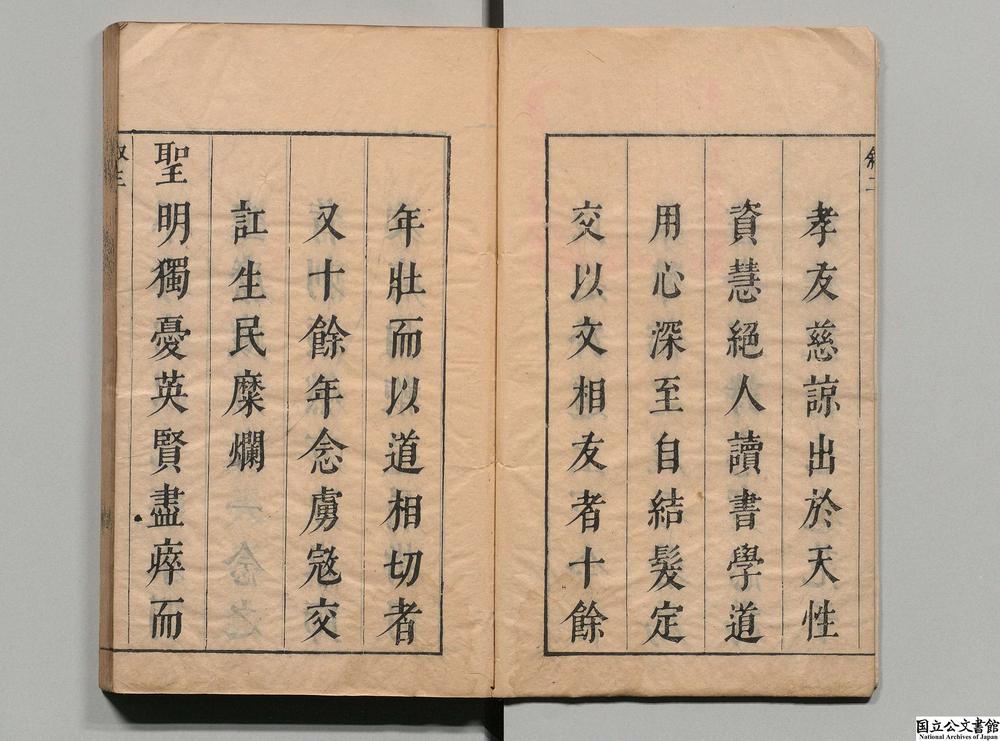 孝友慈諒出於天性
資慧絕人讀書學道
用心深至自結髮定
交以文相友者十餘
年壯而以道相切者
又十餘年念虜寇交
訌生民糜爛
聖明獨憂英賢盡瘁而
国立公文書館
National Archives of Japan